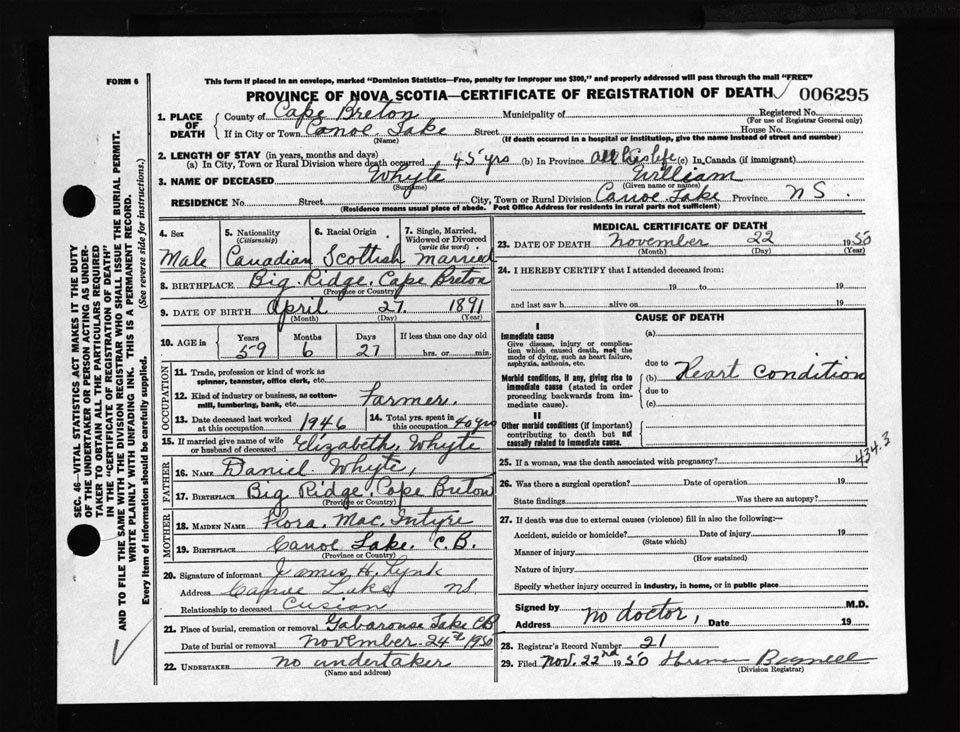 FORM 6
This form if placed in an envelope, marked "Dominion Statistics—Free, penalty for improper use $300," and properly addressed will pass through the mail "FREE"
PROVINCE OF NOVA SCOTIA—CERTIFICATE OF REGISTRATION OF DEATH 006295
1. PLACE OF DEATH County of Cape Breton Municipality of Registered No.
(For use of Registrar General only)
If in City or Town Canoe Lake Street House No.
(Name) (If death occurred in a hospital or institution, give the name instead of street and number)
2. LENGTH OF STAY (in years, months and days)
(a) In City, Town or Rural Division where death occurred 45 yrs (b) In Province all his life (c) In Canada (if immigrant)
3. NAME OF DECEASED Whyte William
(Surname) (Given name or names)
RESIDENCE No. Street City, Town or Rural Division Canoe Lake Province N S.
(Residence means usual place of abode. Post Office Address for residents in rural parts not sufficient)
4. Sex 5. Nationality (Citizenship) 6. Racial Origin 7. Single, Married, Widowed or Divorced (write the word)
Male Canadian Scottish married
8. BIRTHPLACE Big Ridge, Cape Breton
(Province or Country)
9. DATE OF BIRTH April 27 1891
(Month) (Day) (Year)
10. AGE in Years Months Days If less than one day old
59 6 27 hrs. or min.
OCCUPATION
11. Trade, profession or kind of work as spinner, teamster, office clerk, etc.
12. Kind of industry or business, as cotton-mill, lumbering, bank, etc. Farmer.
13. Date deceased last worked at this occupation 1946 14. Total yrs. spent in this occupation 40 yrs
15. If married give name of wife or husband of deceased Elizabeth Whyte
FATHER
16. NAME Daniel Whyte,
17. BIRTHPLACE Big Ridge, Cape Breton
(Province or Country)
MOTHER
18. MAIDEN NAME Flora Mac Intyre
19. BIRTHPLACE Canoe Lake. C.B.
(Province or Country)
20. Signature of informant James H. Lynk
Address Canoe Lake NS
Relationship to deceased Cusian
21. Place of burial, cremation or removal Gabarouse Lake CB
Date of burial or removal November 24th 1950
22. UNDERTAKER no undertaker
(Name and address)
MEDICAL CERTIFICATE OF DEATH
23. DATE OF DEATH November 22 1950
(Month) (Day) (Year)
24. I HEREBY CERTIFY that I attended deceased from:
19 to 19
and last saw h alive on 19
CAUSE OF DEATH
I
Immediate cause (a)
Give disease, injury or complication which caused death, not the mode of dying, such as heart failure, asphyxia, asthenia, etc.
due to
Morbid conditions, if any, giving rise to immediate cause (stated in order proceeding backwards from immediate cause). (b) Heart Condition
due to
(c)
II
Other morbid conditions (if important) contributing to death but not causally related to immediate cause.
434.3
25. If a woman, was the death associated with pregnancy?
26. Was there a surgical operation? Date of operation 19
State findings Was there an autopsy?
27. If death was due to external causes (violence) fill in also the following:—
Accident, suicide or homicide? Date of injury 19
(State which)
Manner of injury
(How sustained)
Nature of injury
Specify whether injury occurred in industry, in home, or in public place
Signed by no doctor, M.D.
Address Date 19
28. Registrar's Record Number 21
29. Filed Nov. 22nd 1950 Bagnell
(Division Registrar)
SEC. 46—VITAL STATISTICS ACT MAKES IT THE DUTY
OF THE UNDERTAKER OR PERSON ACTING AS UNDER-
TAKER TO OBTAIN ALL THE PARTICULARS REQUIRED
IN THE "CERTIFICATE OF REGISTRATION OF DEATH"
AND TO FILE THE SAME WITH THE DIVISION REGISTRAR WHO SHALL ISSUE THE BURIAL PERMIT.
WRITE PLAINLY WITH UNFADING INK. THIS IS A PERMANENT RECORD.
Every item of information should be carefully supplied. (See reverse side for instructions.)